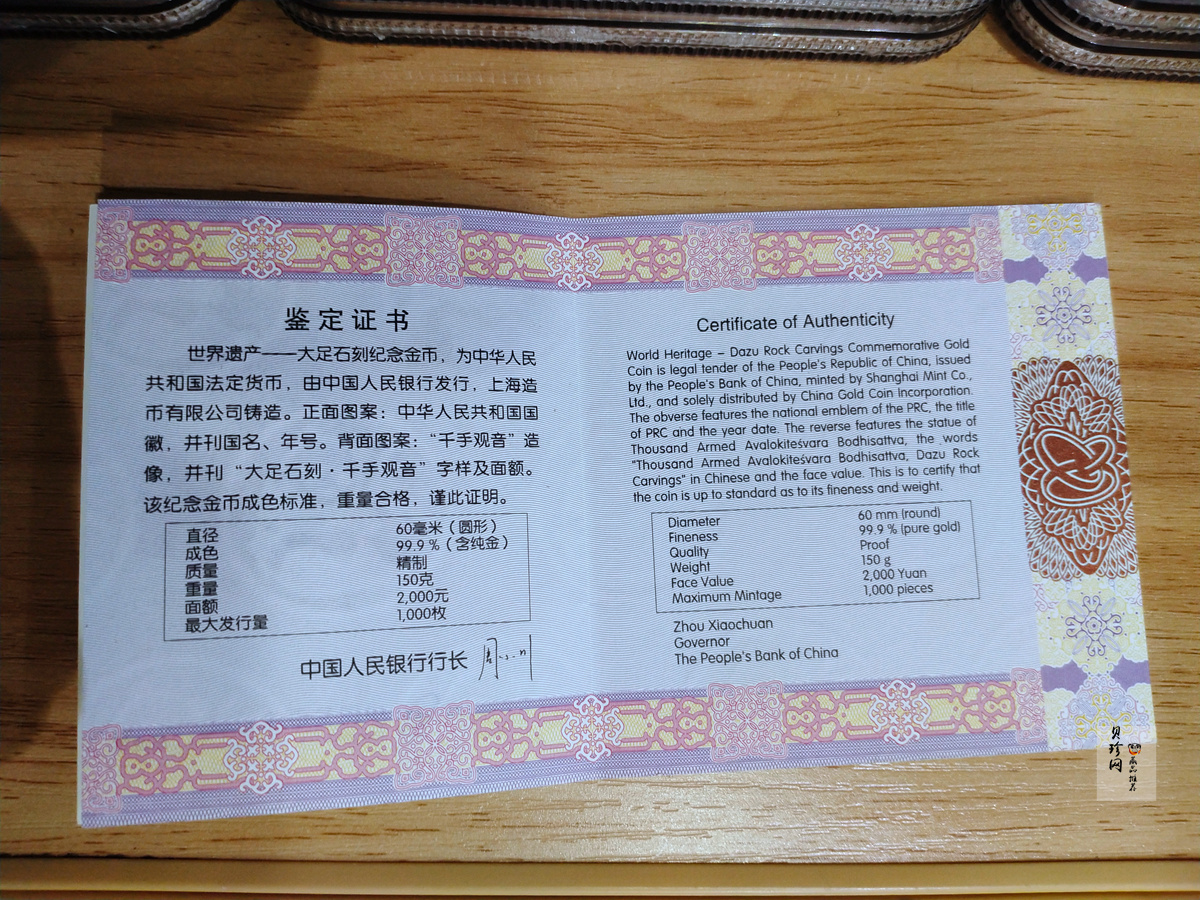 鉴定证书
世界遗产——大足石刻纪念金币，为中华人民
共和国法定货币，由中国人民银行发行，上海造
币有限公司铸造。正面图案：中华人民共和国国
徽，并刊国名、年号。背面图案：“千手观音”造
像，并刊“大足石刻·千手观音”字样及面额。
该纪念金币成色标准，重量合格，谨此证明。
直径 60毫米（圆形）
成色 99.9％（含纯金）
质量 精制
重量 150克
面额 2,000元
最大发行量 1,000枚
中国人民银行行长 周小川
Certificate of Authenticity
World Heritage – Dazu Rock Carvings Commemorative Gold
Coin is legal tender of the People's Republic of China, issued
by the People's Bank of China, minted by Shanghai Mint Co.,
Ltd., and solely distributed by China Gold Coin Incorporation.
The obverse features the national emblem of the PRC, the title
of PRC and the year date. The reverse features the statue of
Thousand Armed Avalokiteśvara Bodhisattva, the words
"Thousand Armed Avalokiteśvara Bodhisattva, Dazu Rock
Carvings" in Chinese and the face value. This is to certify that
the coin is up to standard as to its fineness and weight.
Diameter 60 mm (round)
Fineness 99.9 % (pure gold)
Quality Proof
Weight 150 g
Face Value 2,000 Yuan
Maximum Mintage 1,000 pieces
Zhou Xiaochuan
Governor
The People's Bank of China
贝珍网